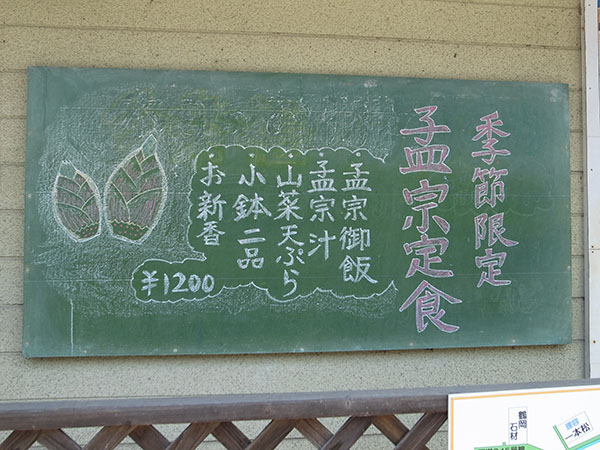 季節限定
孟宗定食
・孟宗御飯
・孟宗汁
・山菜天ぷら
・小鉢二品
・お新香
¥1200
鶴岡
石材
一本松